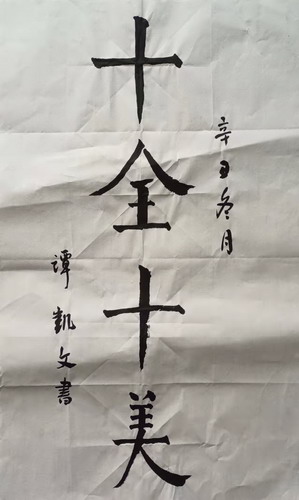 辛丑冬月
十全十美
谭凯文書